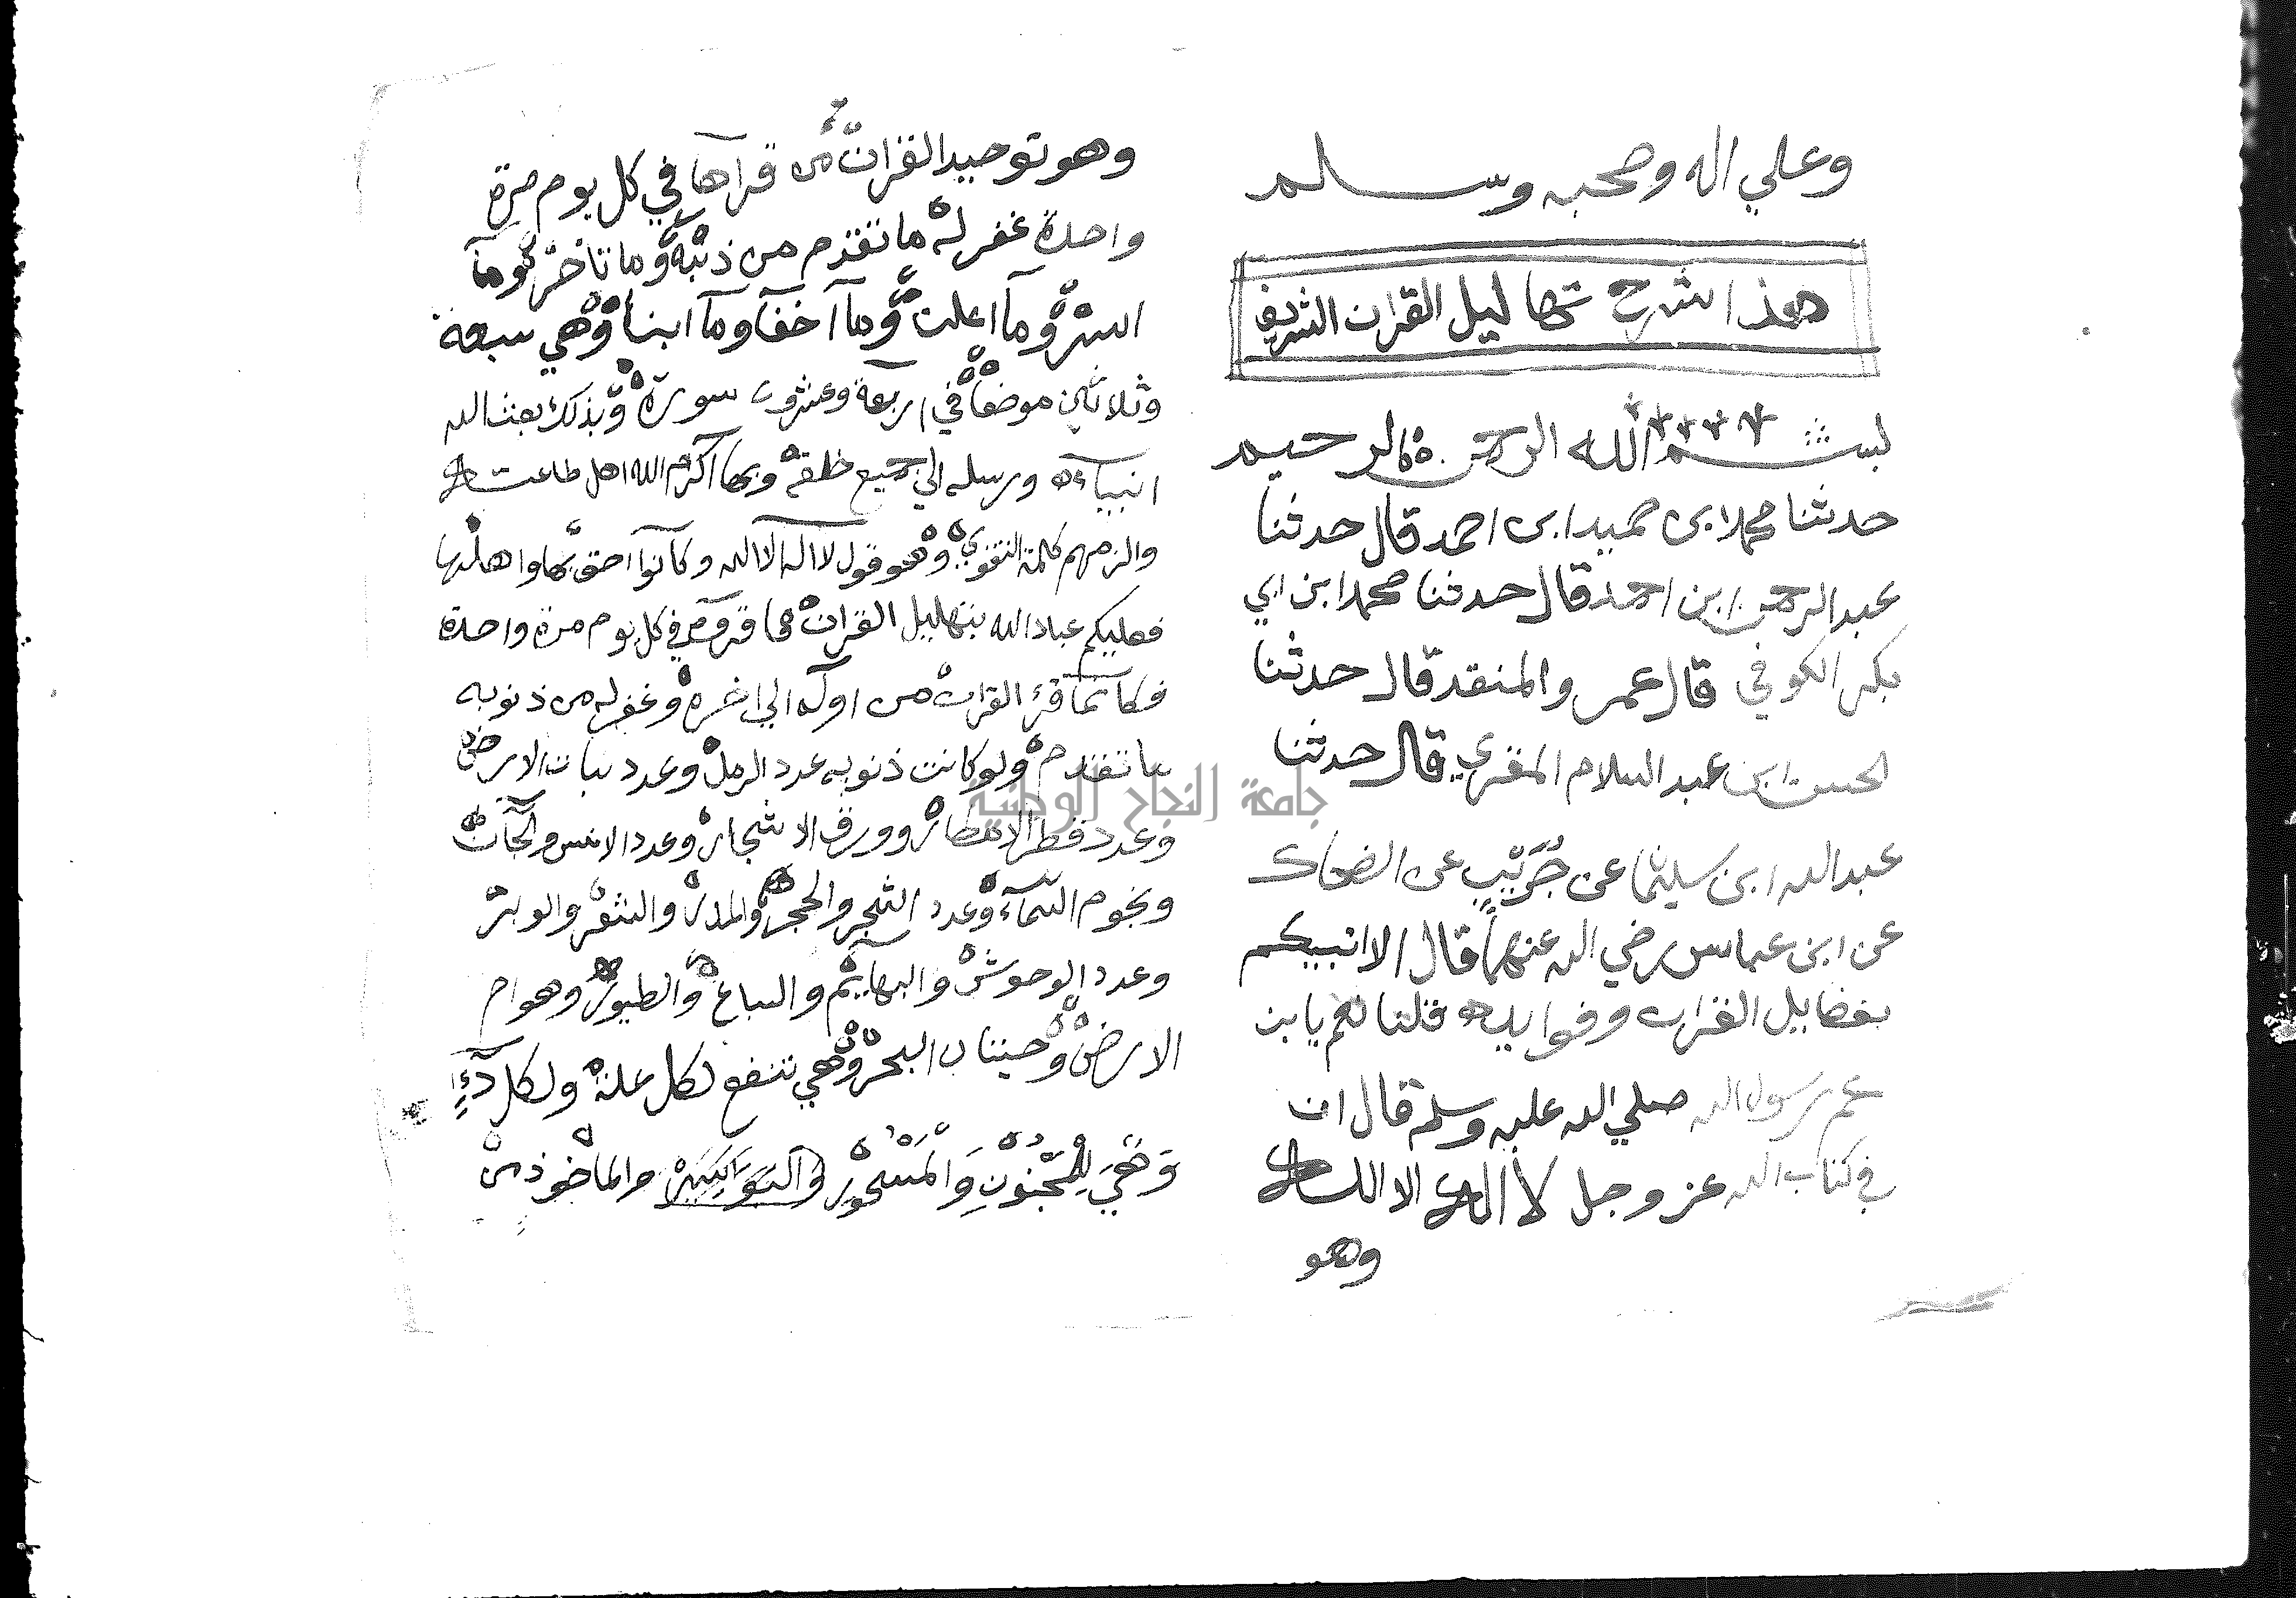 وعلي اله وصحبه وسلم
هذا شرح تهاليل القران الشريف
بسم الله الرحمن الرحيم
حدثنا محمد ابن حميد ابن احمد قال حدثنا
عبد الرحمن ابن احمد قال حدثنا محمد ابن ابي
بكر الكوفي قال عمر والمنقد قال حدثنا
الحسن ابن عبد السلام المقري قال حدثنا
عبد الله ابن سليمان عن جُرَيْبٍ عن الضحاك
عن ابن عباس رضي الله عنهما قال الا انبيكم
بفضايل القران وفوايده قلنا نعم يا بن
عم رسول الله صلي الله عليه وسلم قال ان
في كتاب الله عز وجل لا اله الا الله
وهو
وهو توحيد القران من قراها في كل يوم مرة
واحدة غفر له ما تقدم من ذنبه وما تأخر وما
اسر وما اعلن وما آخفا وما ابدا وهي سبعة
وثلاثين موضعا في اربعة وعشرون سورة وبذلك بعث الله
انبياءه ورسله الي جميع خلقه وبها اكرم الله اهل طاعته
والزمهم كلمة التقوي وهو قول لا اله الا الله وكانوا احق بها واهلها
فعليكم عباد الله بتهاليل القران في كل يوم مرة واحدة
فكانما قرأ القران من اوله الي اخره وغفر له من ذنوبه
ما تقدم ولو كانت ذنوبه عدد الرمل وعدد نبات الارض
وعدد قطر الامطار وورق الاشجار وعدد الانس والجان
ونجوم السماء وعدد الشجر والحجر والمدر والشعر والوبر
وعدد الوحوش والبهايم والسباع والطيور وهوام
الارض وحيتان البحر وهي تنفع لكل علة ولكل دآءٍ
وَهِيَ لِلْمَجْنُوْنِ وَالْمَسْحُوْرِ والماخوذ من
جامعة النجاح الوطنية